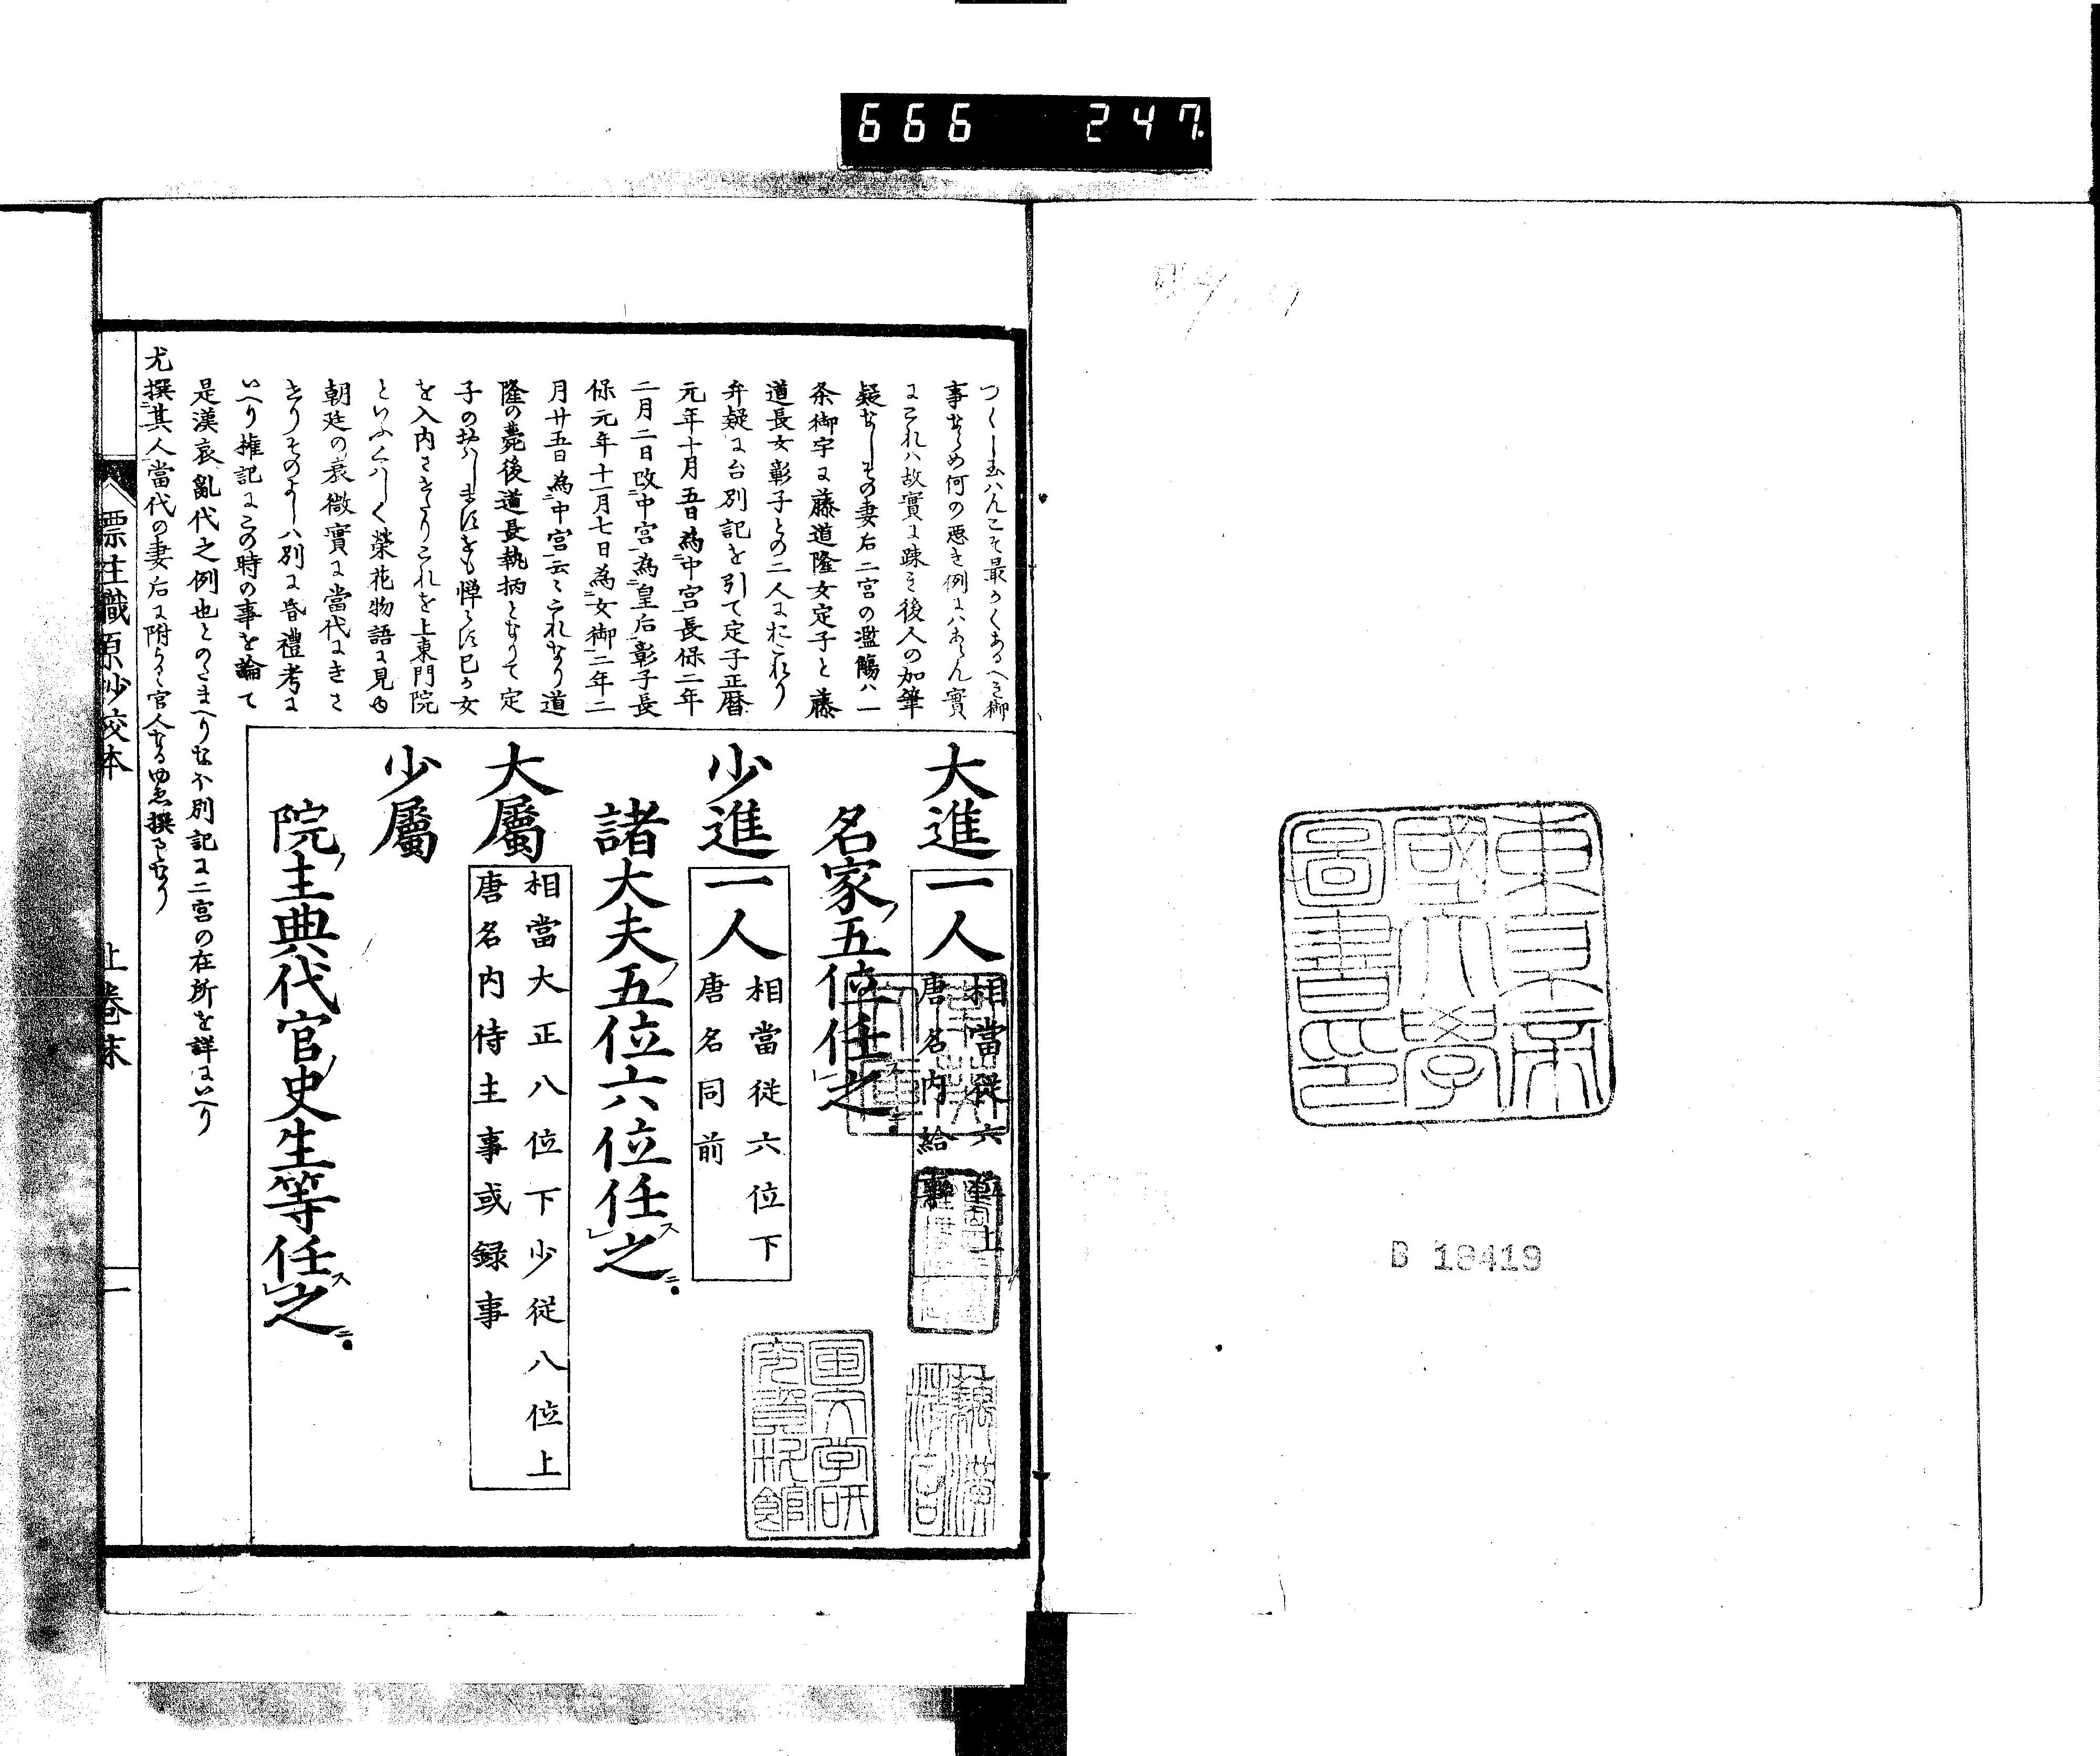 666 247
東京帝
國大學
圖書印
B 18419
つくし玉ハんこそ最かくあるへき御
事ならめ何の悪き例にハあらん實
にこれハ故實に疎き後人の加筆
疑なしその妻右二宮の濫觴ハ一
条御宇に藤道隆女定子と藤
道長女彰子との二人におこれり
弁疑に台別記を引て定子正暦
元年十月五日為中宮長保二年
二月二日改中宮為皇后彰子長
保元年十一月七日為女御二年二
月廿五日為中宮云々これなり道
隆の薨後道長執柄となりて定
子のおハしますをも憚らす己か女
を入内させたりこれを上東門院
といふくハしく榮花物語に見ゆ
朝廷の衰微實に當代にきさ
せりそのよしハ別に昏禮考に
いへり権記にこの時の事を論て
是漢哀亂代之例也とのたまへりなほ別記に二宮の在所を詳にいへり
尤撰其人當代の妻后に附らく官人なるゆゑ撰るなり
大進一人
相當從六位上
唐名内給事
名家五位任之
少進一人
相當従六位下
唐名同前
諸大夫五位六位任之
大屬
相當大正八位下少従八位上
唐名内侍主事或録事
少屬
院主典代官史生等任之
国文学研
究資料館
標注職原抄校本 上巻末 一